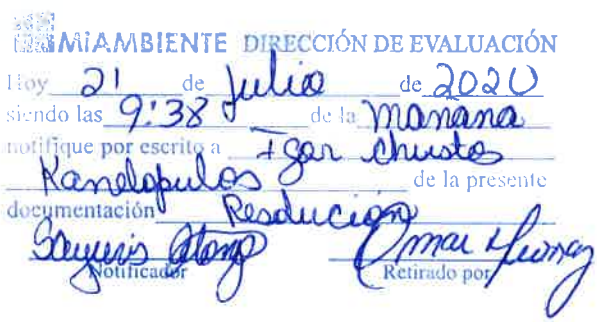 MiAMBIENTE DIRECCIÓN DE EVALUACIÓN
Hoy 21 de Julio de 2020
siendo las 9:38 de la manana
notifique por escrito a Igor Christos
Kanelopulos de la presente
documentación Resolución
Sayuris Omar
Notificador Retirado por